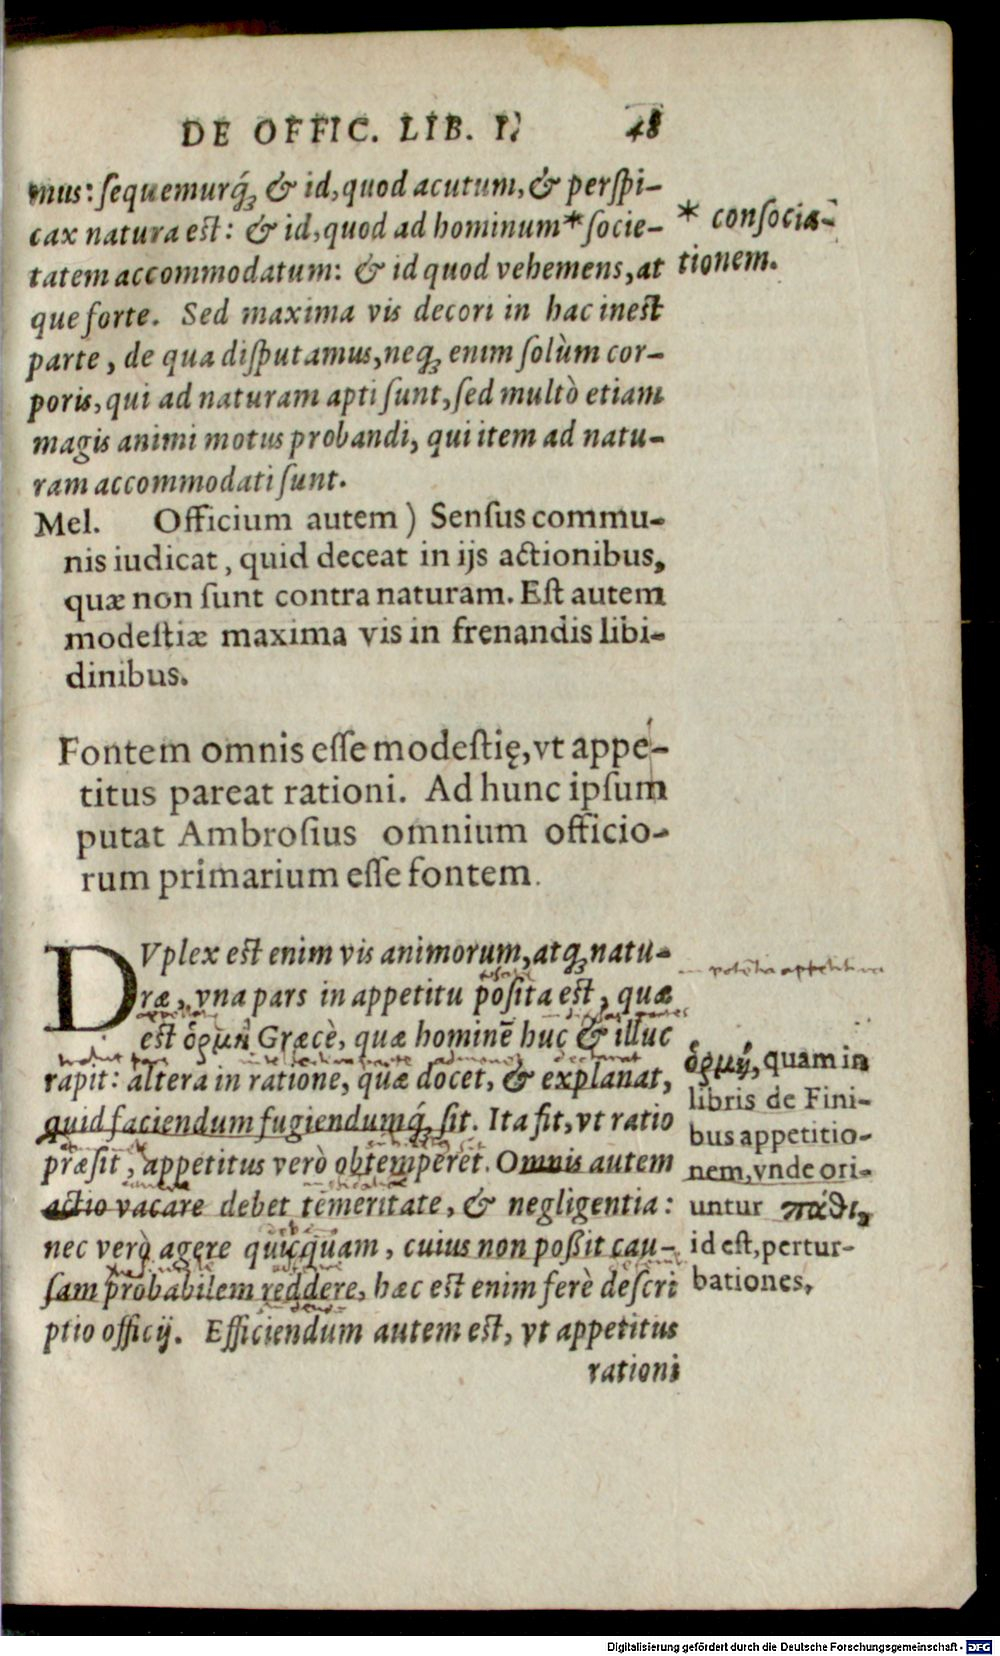 DE OFFIC. LIB. I. 48
mus: sequemurq́ꝫ & id, quod acutum, & perspi-
cax natura est: & id, quod ad hominum * socie-
tatem accommodatum: & id quod vehemens, at
que forte. Sed maxima vis decori in hac inest
parte, de qua disputamus, neqꝫ enim solùm cor-
poris, qui ad naturam apti sunt, sed multò etiam
magis animi motus probandi, qui item ad natu-
ram accommodati sunt.
* consocia-
tionem.
Mel. Officium autem) Sensus commu-
nis iudicat, quid deceat in ijs actionibus,
quæ non sunt contra naturam. Est autem
modestiæ maxima vis in frenandis libi-
dinibus.
Fontem omnis esse modestię, vt appe-
titus pareat rationi. Ad hunc ipsum
putat Ambrosius omnium officio-
rum primarium esse fontem.
DVplex est enim vis animorum, atqꝫ natu-
ræ, vna pars in appetitu posita est, quæ
est ὁρμὴ Græcè, quæ hominē huc & illuc
rapit: altera in ratione, quæ docet, & explanat,
quid faciendum fugiendumq́ꝫ sit. Ita fit, vt ratio
præsit, appetitus verò obtemperet. Omnis autem
actio vacare debet temeritate, & negligentia:
nec verò agere quicquam, cuius non poßit cau-
sam probabilem reddere, hæc est enim ferè descri
ptio officij. Efficiendum autem est, vt appetitus
rationi
potentia appetitiva
ὁρμὴ, quam in
libris de Fini-
bus appetitio-
nem, vnde ori-
untur πάθη,
id est, pertur-
bationes,
Digitalisierung gefördert durch die Deutsche Forschungsgemeinschaft - DFG